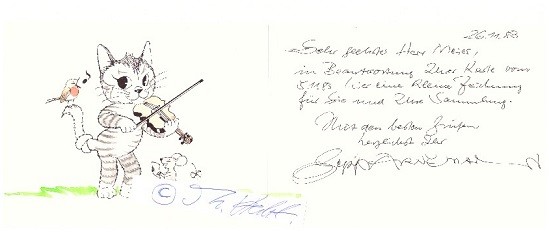 Sehr geehrter Herr Meier,
in Beantwortung Ihrer Karte vom
hier eine kleine Zeichnung
für Sie und Ihre Sammlung.
Mit den besten Grüßen
herzlichst Ihr
©